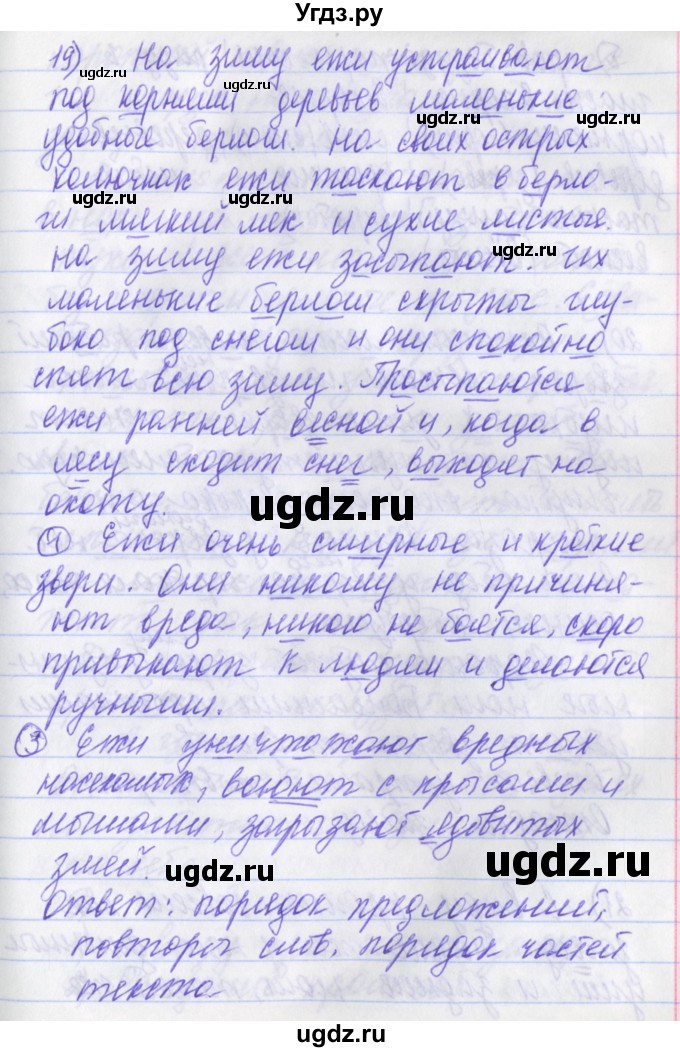 Угдз.ру
19) На зиму ежи устраивают
ugdz.ru
под корнями деревьев маленькие
ugdz.ru ugdz.ru
удобные берлоги. На своих острых
колючках ежи таскают в берло-
ugdz.ru
ги мягкий мех и сухие листья.
ugdz.ru
На зиму ежи засыпают. Их
ugdz.ru
маленькие берлоги скрыты глу-
боко под снегом и они спокойно
ugdz.ru
спят всю зиму. Простыпаются
ugdz.ru
ежи ранней весной и, когда в
лесу сходит снег, выходят на
охоту.
ugdz.ru
④ Ежи очень смирные и кроткие
звери. Они никому не причиня-
ют вреда, никого не боятся, скоро
ugdz.ru ugdz.ru
привыкают к людям и делаются
ручными.
③ Ежи уничтожают вредных
насекомых, воюют с крысами и
мышами, загрызают ядовитых
змей.
ugdz.ru ugdz.ru
Ответ: порядок предложений,
повторы слов, порядок частей
текста
ugdz.ru